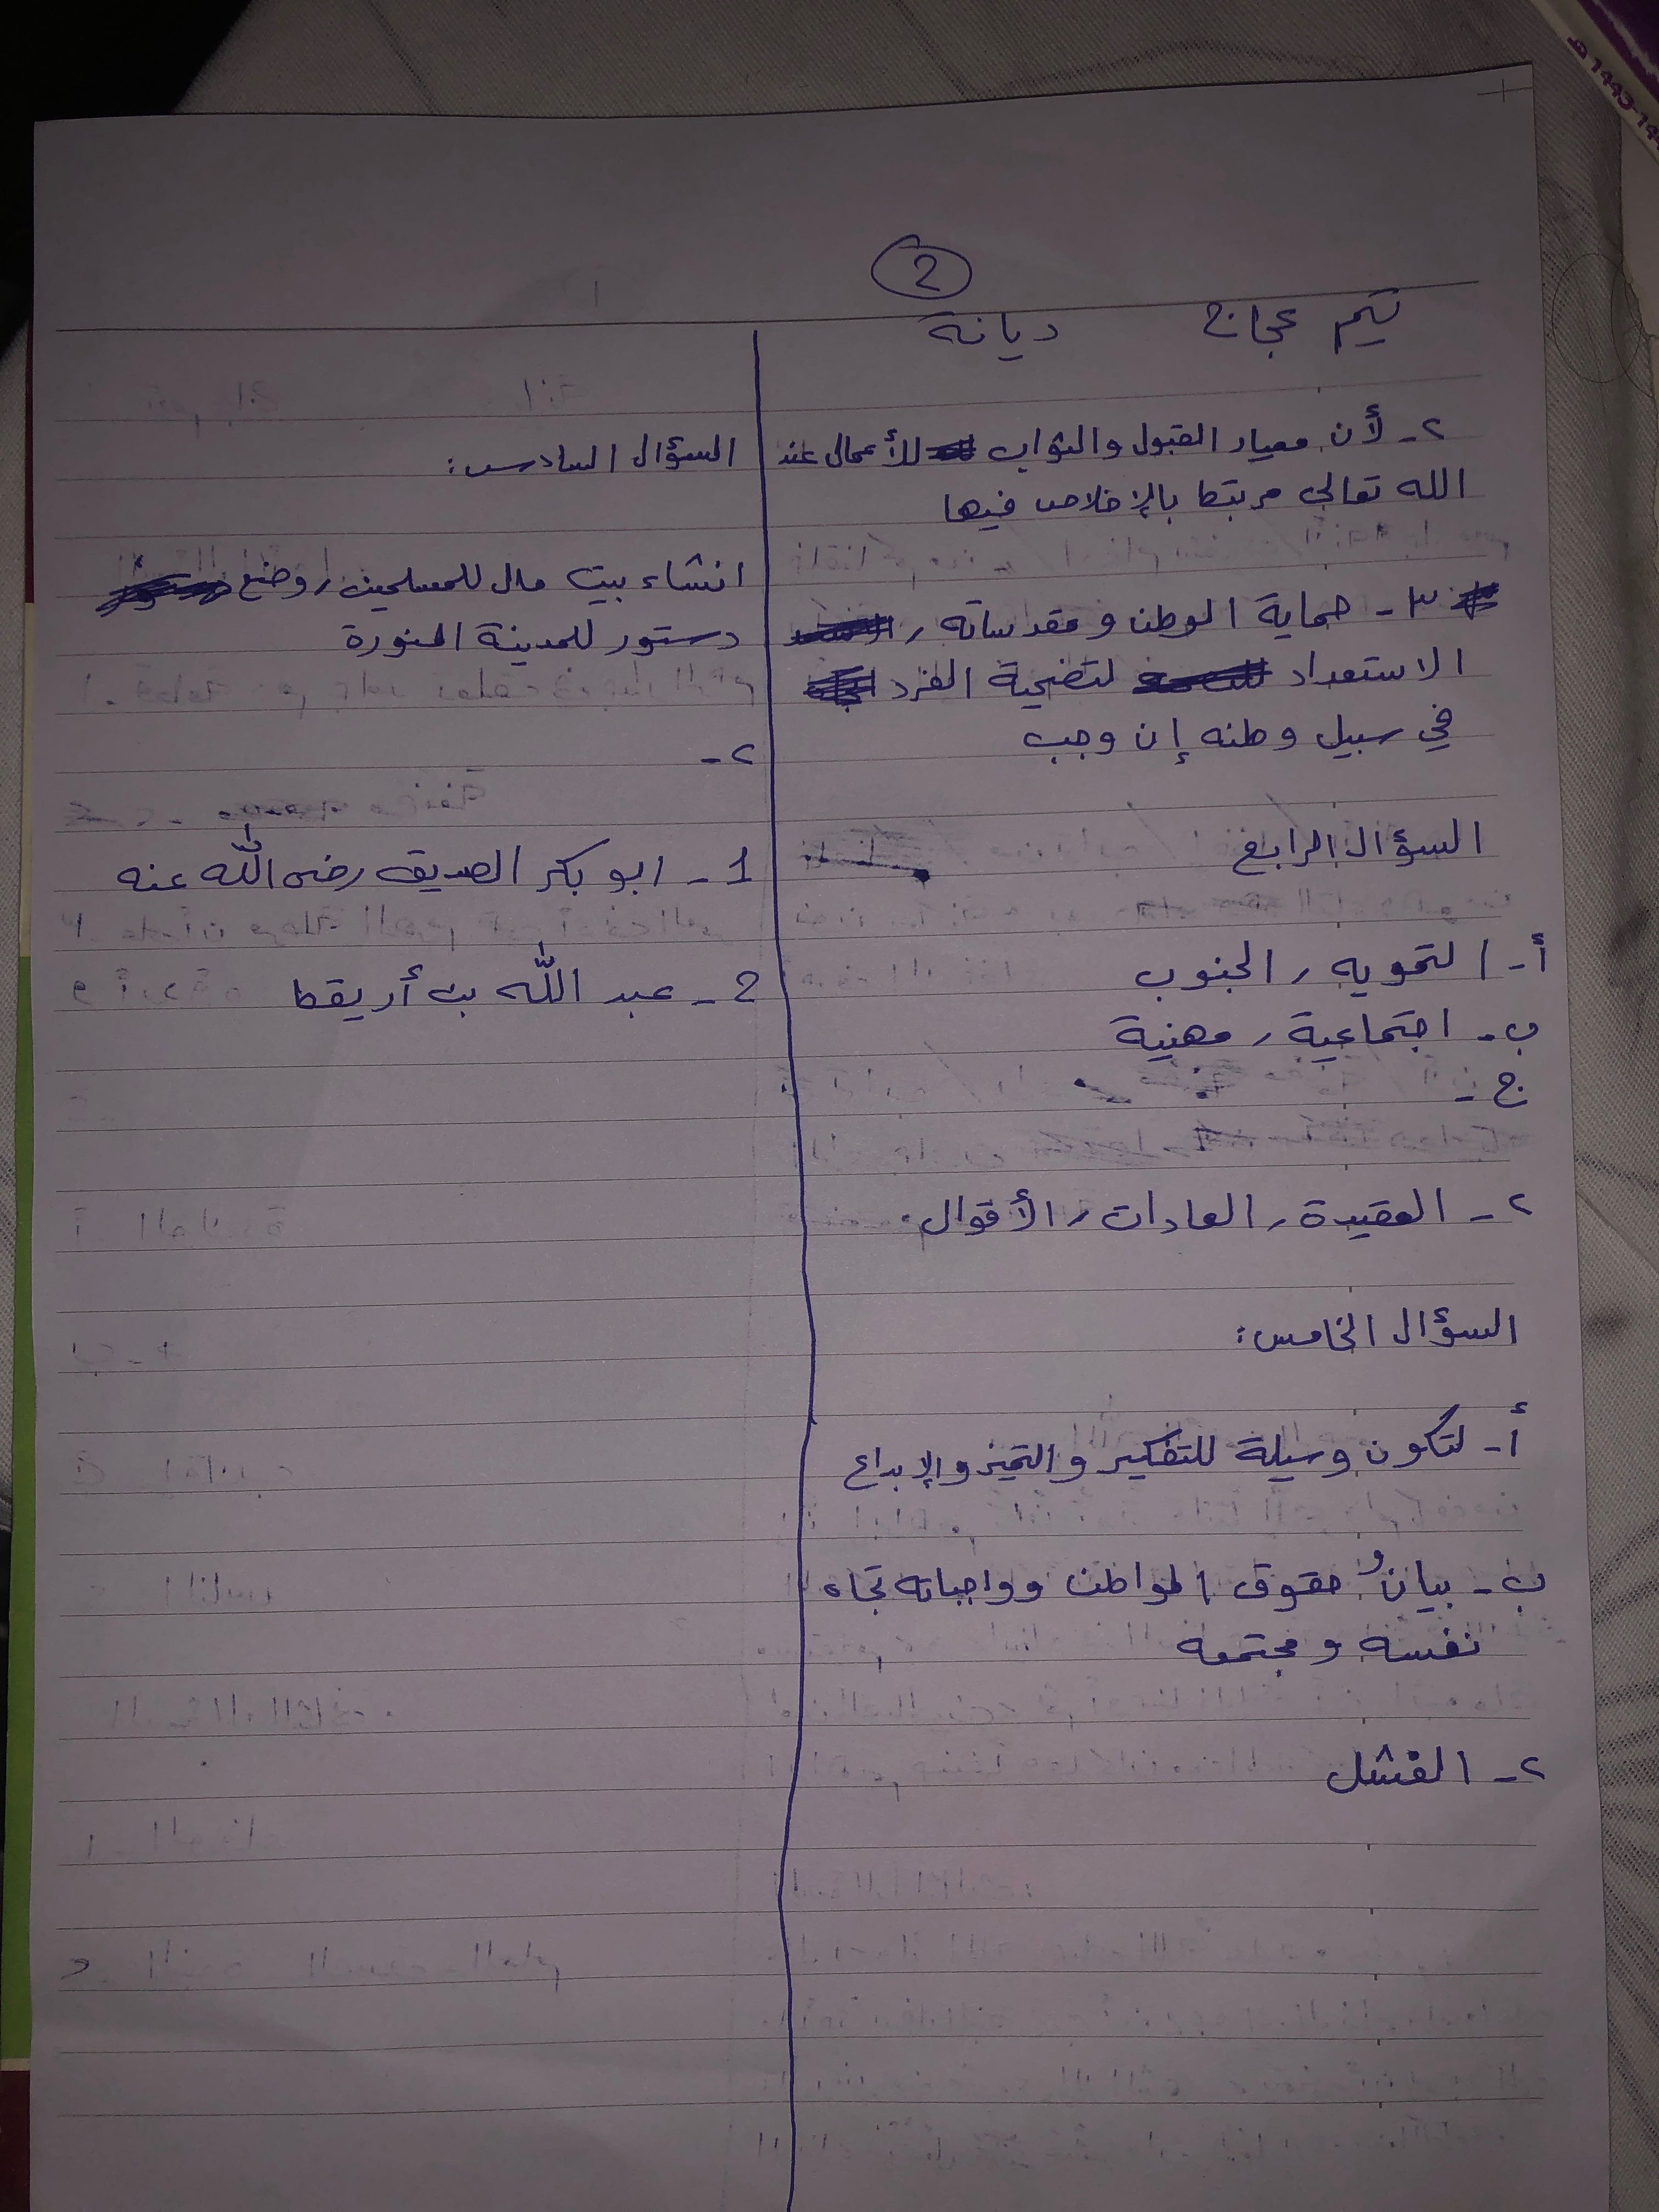 2
تيم عجاج ديانة
٢- لأن معيار القبول والثواب للأعمال عند
الله تعالى مربتط بالإخلاص فيها
٣- حماية الوطن ومقدساته ,
الاستعداد لتضحية الفرد
في سبيل وطنه إن وجب
السؤال الرابع
أ- التمويه , الجنوب
ب- اجتماعية , مهنية
ج-
٢- العقيدة , العادات , الأقوال.
السؤال الخامس:
أ- لتكون وسيلة للتفكير والتميز والإبداع
ب- بيانُ حقوق المواطن وواجباته تجاه
نفسه ومجتمعه
٢- الفشل
السؤال السادس:
انشاء بيت مال للمسلمين , وضع
دستور للمدينة المنورة
٢-
1- ابو بكر الصديق رضى الله عنه
2- عبد الله بن أريقط
1443-14
هـ